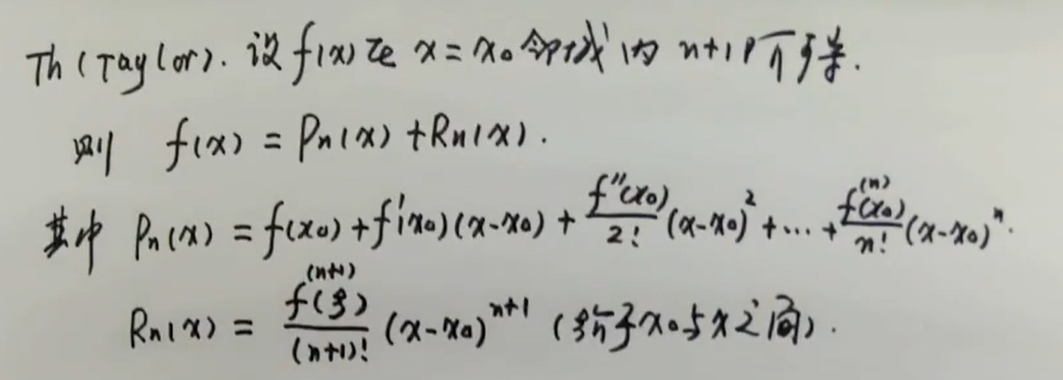 Th (Taylor). 设 f(x) 在 x = x₀ 邻域内 n+1阶可导.
则 f(x) = Pₙ(x) + Rₙ(x).
其中 Pₙ(x) = f(x₀) + f'(x₀)(x-x₀) + f''(x₀)/2! (x-x₀)² + ... + f⁽ⁿ⁾(x₀)/n! (x-x₀)ⁿ.
Rₙ(x) = f⁽ⁿ⁺¹⁾(ξ)/(n+1)! (x-x₀)ⁿ⁺¹ (ξ介于x₀与x之间).